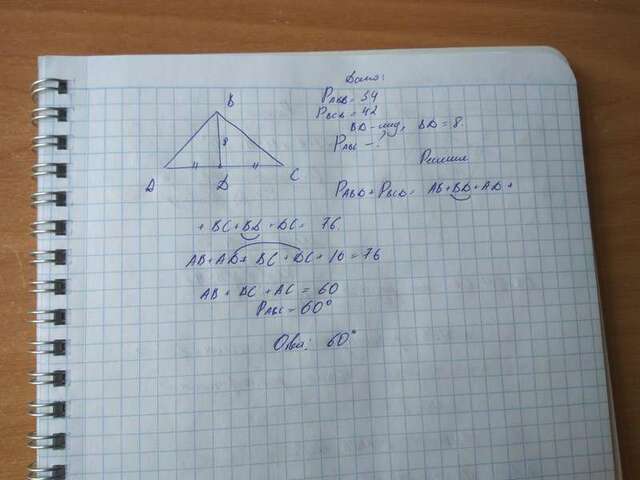 Дано:
P ABD = 34
P BCD = 42
BD - мед, BD = 8
P ABC - ?
Решил
B
8
A
D
C
P ABD + P BCD = AB + BD + AD +
+ BC + BD + DC = 76
AB + AD + BC + DC + 16 = 76
AB + BC + AC = 60
P ABC = 60°
Ответ: 60°